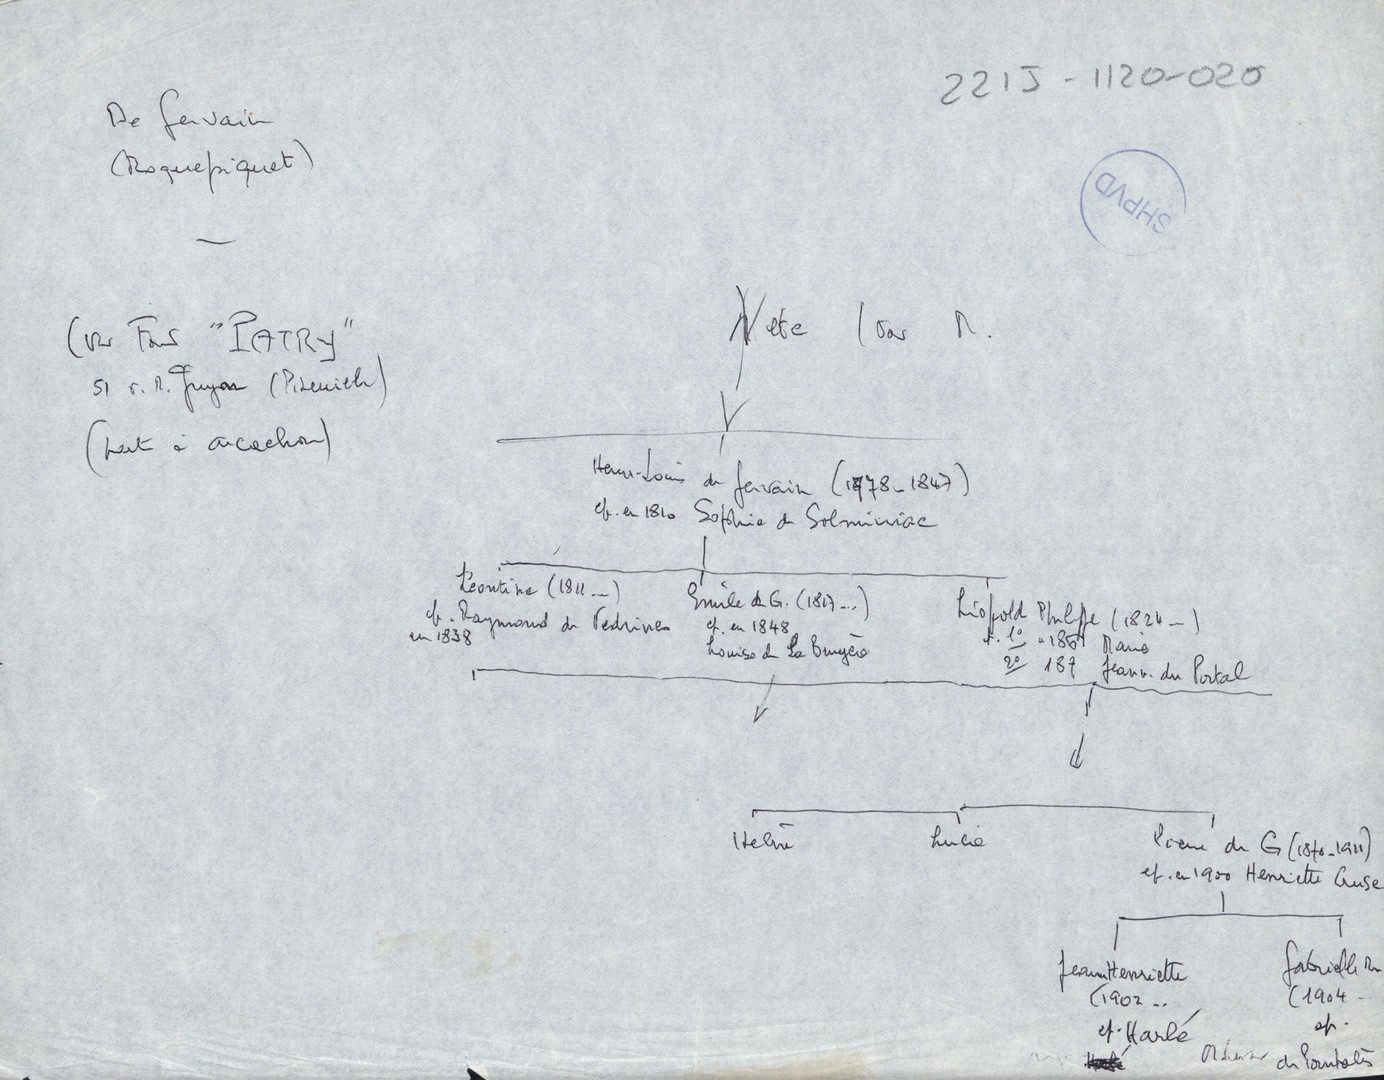 221J-1120-020
De Gervain
(Roquepiquet)
SHPVD
"PATRY"
(Port à Arcachon)
Henri-Louis de Gervain (1778-1847)
ép. en 1810 Sophie de Solminiac
Léontine (1811...)
ép. Raymond de Vedrines
en 1838
Emile de G. (1817...)
ép. en 1848
Louise de La Bruyère
Léopold Philippe (1824...)
1° Marie
2° 187 Jeanne du Portal
Lucie
Pierre de G (1870-1911)
ép. en 1900 Henriette Cruse
Jeanne Henriette
(1902 ..
ép. Harlé
Gabrielle
(1904
ép.
de Pourtalès